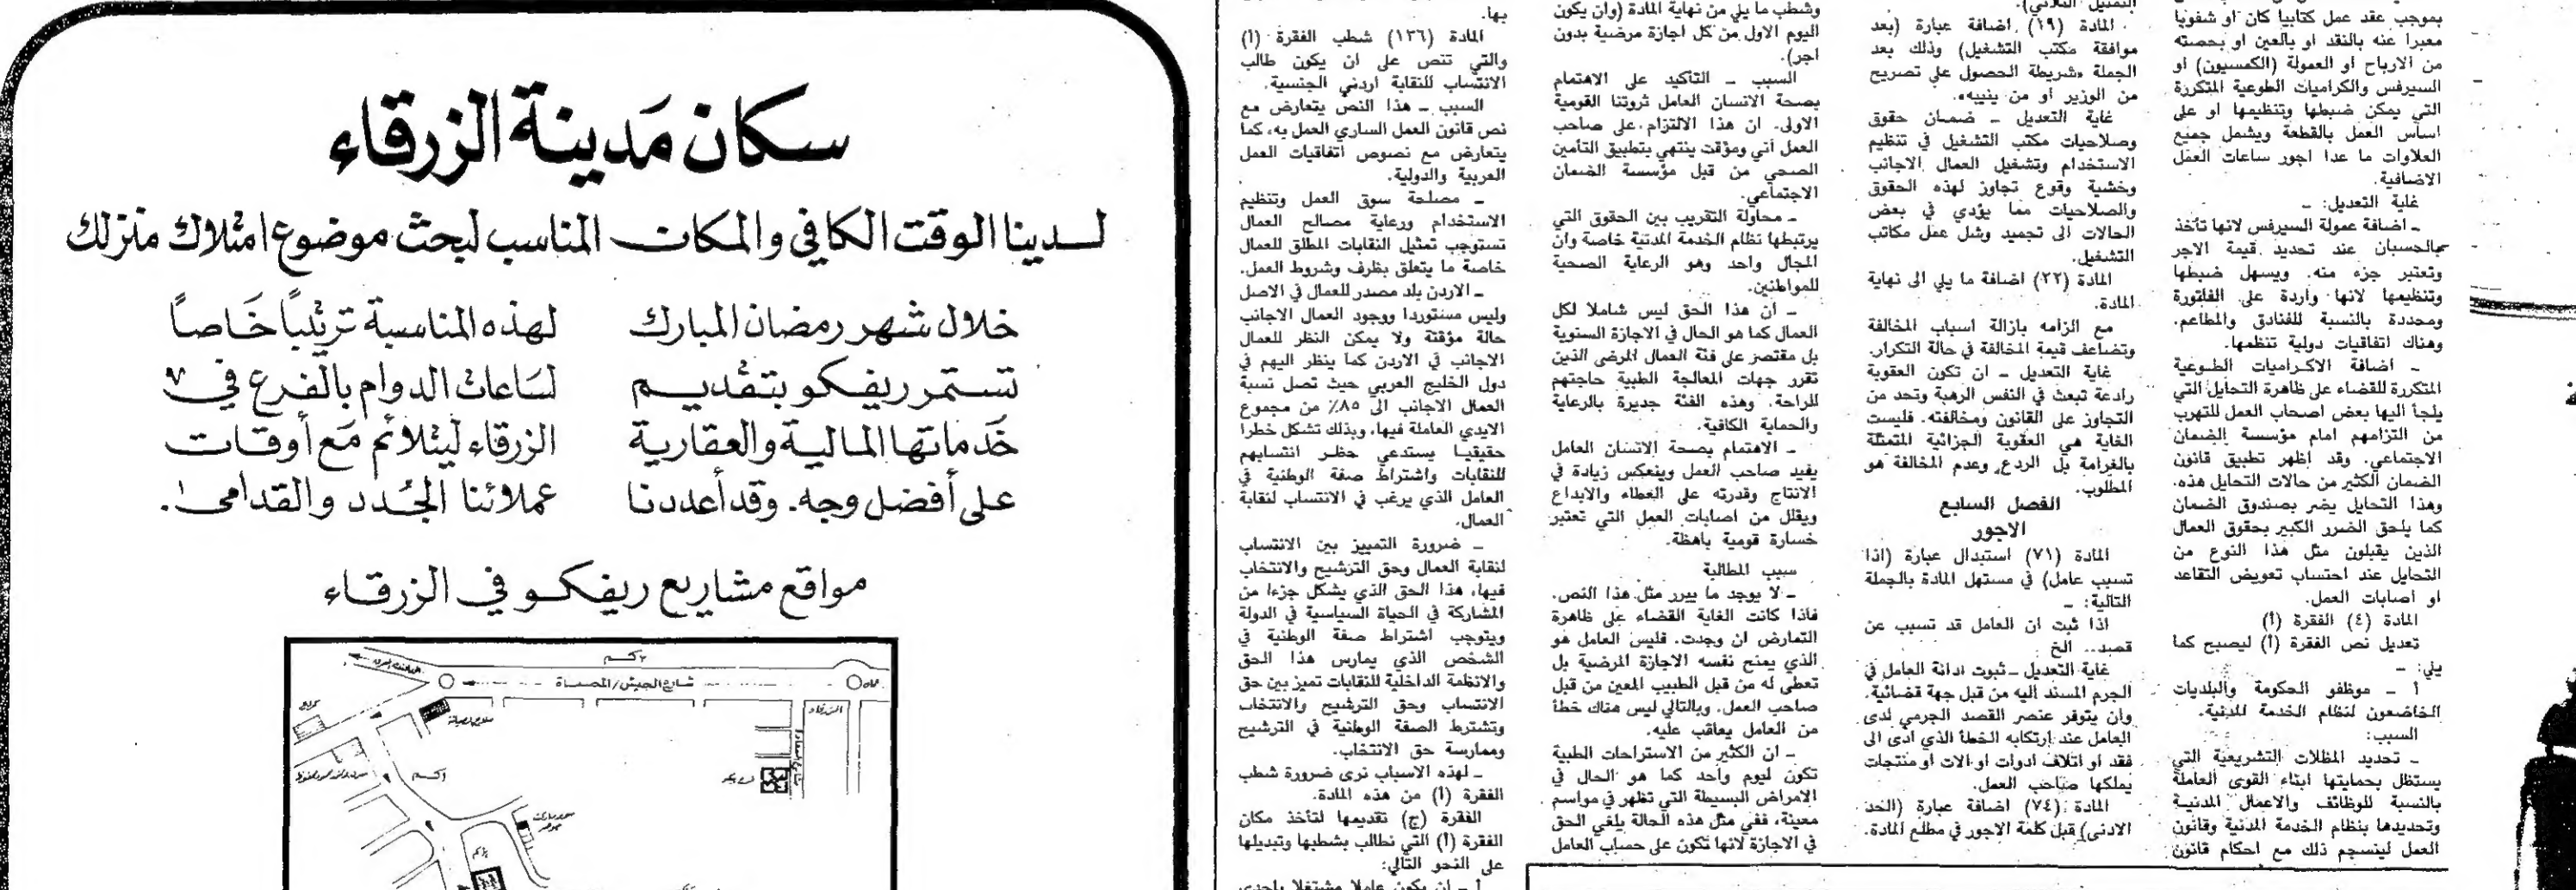 التمثيل الثلاثي).
بموجب عقد عمل كتابيا كان او شفويا
معبرا عنه بالنقد او بالعين او بحصته
من الارباح او العمولة (الكمسيون) او
السيرفس والكراميات الطوعية المتكررة
التي يمكن ضبطها وتنظيمها او على
اساس العمل بالقطعة ويشمل جميع
العلاوات ما عدا اجور ساعات العمل
الاضافية.
غاية التعديل: ـ
ـ اضافة عمولة السيرفس لانها تأخذ
بالحسبان عند تحديد قيمة الاجر
وتعتبر جزء منه. ويسهل ضبطها
وتنظيمها لانها واردة على الفاتورة
ومحددة بالنسبة للفنادق والمطاعم.
وهناك اتفاقيات دولية تنظمها.
ـ اضافة الاكراميات الطوعية
المتكررة للقضاء على ظاهرة التحايل التي
يلجأ اليها بعض اصحاب العمل للتهرب
من التزامهم امام مؤسسة الضمان
الاجتماعي. وقد اظهر تطبيق قانون
الضمان الكثير من حالات التحايل هذه.
وهذا التحايل يضر بصندوق الضمان
كما يلحق الضرر الكبير بحقوق العمال
الذين يقبلون مثل هذا النوع من
التحايل عند احتساب تعويض التقاعد
او اصابات العمل.
المادة (٤) الفقرة (أ)
تعديل نص الفقرة (أ) ليصبح كما
يلي: ـ
أ ـ موظفو الحكومة والبلديات
الخاضعون لنظام الخدمة المدنية.
السبب:
ـ تحديد المظلات التشريعية التي
يستظل بحمايتها ابناء القوى العاملة
بالنسبة للوظائف والاعمال المدنية
وتحديدها بنظام الخدمة المدنية وقانون
العمل لينسجم ذلك مع احكام قانون
المادة (١٩) اضافة عبارة (بعد
موافقة مكتب التشغيل) وذلك بعد
الجملة «شريطة الحصول على تصريح
من الوزير او من ينيبه».
غاية التعديل ـ ضمان حقوق
وصلاحيات مكتب التشغيل في تنظيم
الاستخدام وتشغيل العمال الاجانب
وخشية وقوع تجاوز لهذه الحقوق
والصلاحيات مما يؤدي في بعض
الحالات الى تجميد وشل عمل مكاتب
التشغيل.
المادة (٢٢) اضافة ما يلي الى نهاية
المادة.
مع الزامه بازالة اسباب المخالفة
وتضاعف قيمة المخالفة في حالة التكرار.
غاية التعديل ـ ان تكون العقوبة
رادعة تبعث في النفس الرهبة وتحد من
التجاوز على القانون ومخالفته. فليست
الغاية هي العقوبة الجزائية المتمثلة
بالغرامة بل الردع وعدم المخالفة هو
المطلوب.
الفصل السابع
الاجور
المادة (٧١) استبدال عبارة (اذا
تسبب عامل) في مستهل المادة بالجملة
التالية: ـ
اذا ثبت ان العامل قد تسبب عن
قصد.. الخ
غاية التعديل ـ ثبوت ادانة العامل في
الجرم المسند اليه من قبل جهة قضائية.
وان يتوفر عنصر القصد الجرمي لدى
العامل عند ارتكابه الخطأ الذي ادى الى
فقد او اتلاف ادوات او الات او منتجات
يملكها صاحب العمل.
المادة (٧٤) اضافة عبارة (الحد
الادنى) قبل كلمة الاجور في مطلع المادة.
وشطب ما يلي من نهاية المادة (وان يكون
اليوم الاول من كل اجازة مرضية بدون
اجر).
السبب ـ التأكيد على الاهتمام
بصحة الانسان العامل ثروتنا القومية
الاولى. ان هذا الالتزام على صاحب
العمل آني ومؤقت ينتهي بتطبيق التأمين
الصحي من قبل مؤسسة الضمان
الاجتماعي.
ـ محاولة التقريب بين الحقوق التي
يرتبطها نظام الخدمة المدنية خاصة وان
المجال واحد وهو الرعاية الصحية
للمواطنين.
ـ ان هذا الحق ليس شاملا لكل
العمال كما هو الحال في الاجازة السنوية
بل مقتصر على فئة العمال المرضى الذين
تقرر جهات المعالجة الطبية حاجتهم
للراحة. وهذه الفئة جديرة بالرعاية
والحماية الكافية.
ـ الاهتمام بصحة الانسان العامل
يفيد صاحب العمل وينعكس زيادة في
الانتاج وقدرته على العطاء والابداع
ويقلل من اصابات العمل التي تعتبر
خسارة قومية باهظة.
سبب المطالبة
ـ لا يوجد ما يبرر مثل هذا النص.
فاذا كانت الغاية القضاء على ظاهرة
التمارض ان وجدت. فليس العامل هو
الذي يمنح نفسه الاجازة المرضية بل
تعطى له من قبل الطبيب المعين من قبل
صاحب العمل. وبالتالي ليس هناك خطأ
من العامل يعاقب عليه.
ـ ان الكثير من الاستراحات الطبية
تكون ليوم واحد كما هو الحال في
الامراض البسيطة التي تظهر في مواسم
معينة، ففي مثل هذه الحالة يلغي الحق
في الاجازة لانها تكون على حساب العامل
بها.
المادة (١٣٦) شطب الفقرة (أ)
والتي تنص على ان يكون طالب
الانتساب للنقابة اردني الجنسية.
السبب ـ هذا النص يتعارض مع
نص قانون العمل الساري العمل به، كما
يتعارض مع نصوص اتفاقيات العمل
العربية والدولية.
ـ مصلحة سوق العمل وتنظيم
الاستخدام ورعاية مصالح العمال
تستوجب تمثيل النقابات المطلق للعمال
خاصة ما يتعلق بظرف وشروط العمل.
ـ الاردن بلد مصدر للعمال في الاصل
وليس مستوردا ووجود العمال الاجانب
حالة مؤقتة ولا يمكن النظر للعمال
الاجانب في الاردن كما ينظر اليهم في
دول الخليج العربي حيث تصل نسبة
العمال الاجانب الى ٨٥٪ من مجموع
الايدي العاملة فيها، وبذلك تشكل خطرا
حقيقيا يستدعي حظر انتسابهم
للنقابات واشتراط صفة الوطنية في
العامل الذي يرغب في الانتساب لنقابة
العمال.
ـ ضرورة التمييز بين الانتساب
لنقابة العمال وحق الترشيح والانتخاب
فيها، هذا الحق الذي يشكل جزءا من
المشاركة في الحياة السياسية في الدولة
ويتوجب اشتراط صفة الوطنية في
الشخص الذي يمارس هذا الحق
والانظمة الداخلية للنقابات تميز بين حق
الانتساب وحق الترشيح والانتخاب
وتشترط الصفة الوطنية في الترشيح
وممارسة حق الانتخاب.
ـ لهذه الاسباب نرى ضرورة شطب
الفقرة (أ) من هذه المادة.
الفقرة (ج) تقديمها لتأخذ مكان
الفقرة (أ) التي نطالب بشطبها وتبديلها
على النحو التالي:
أ ـ ان يكون عاملا مشتغلا باحدى
سكان مَدينة الزرقاء
لدينا الوقت الكافي والمكان المناسب لبحث موضوع امتلاك منزلك
خلال شهر رمضان المبارك
تستمر ريفكو بتقديم
خَدماتها المالية والعقارية
على أفضل وجه. وقد أعددنا
لهذه المناسبة ترتيباً خَاصاً
لسَاعات الدوام بالفرع في
الزرقاء ليتلائم مَع أوقات
عملائنا الجُدد والقدامى!.
مواقع مشاريع ريفكو في الزرقاء
٢ كم
شارع الجيش/المصفاة
الزرقاء
١ كم